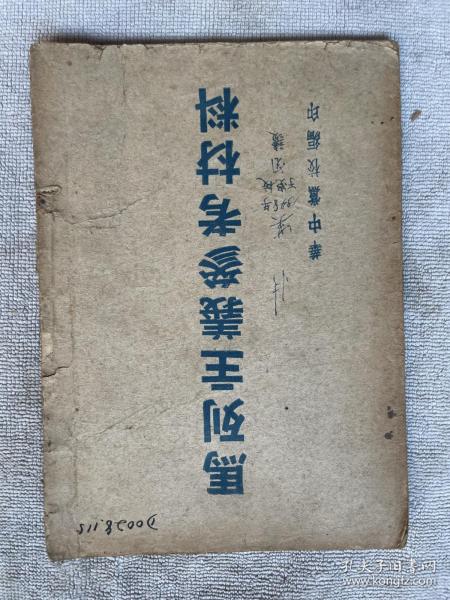 馬列主義參考材料
華中黨校編印
D0028.115
孔夫子旧书网
www.kongfz.com